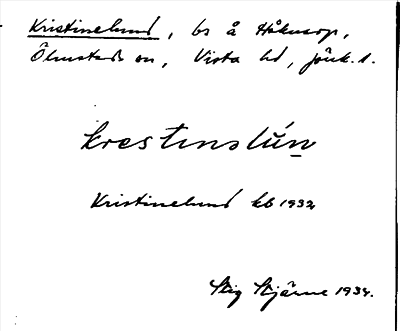 Kristinelund, bs å Håkusarp,
Ölmstads sn, Vista hd, Jönk. l.
krestinslún
Kristinelund kb 1932
Stig Stjärne 1934.